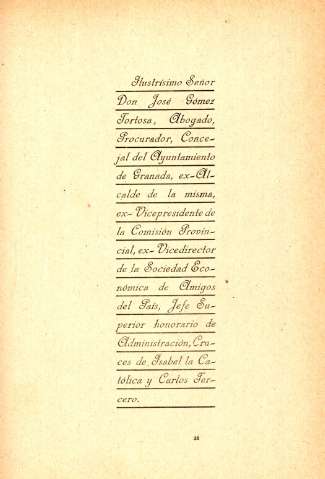 Ilustrísimo Señor
Don José Gómez
Tortosa, Abogado,
Procurador, Conce-
jal del Ayuntamiento
de Granada, ex-Al-
calde de la misma,
ex-Vicepresidente de
la Comisión Provin-
cial, ex-Vicedirector
de la Sociedad Eco-
nómica de Amigos
del País, Jefe Su-
perior honorario de
Administración, Cru-
ces de Isabel la Ca-
tólica y Carlos Ter-
cero.